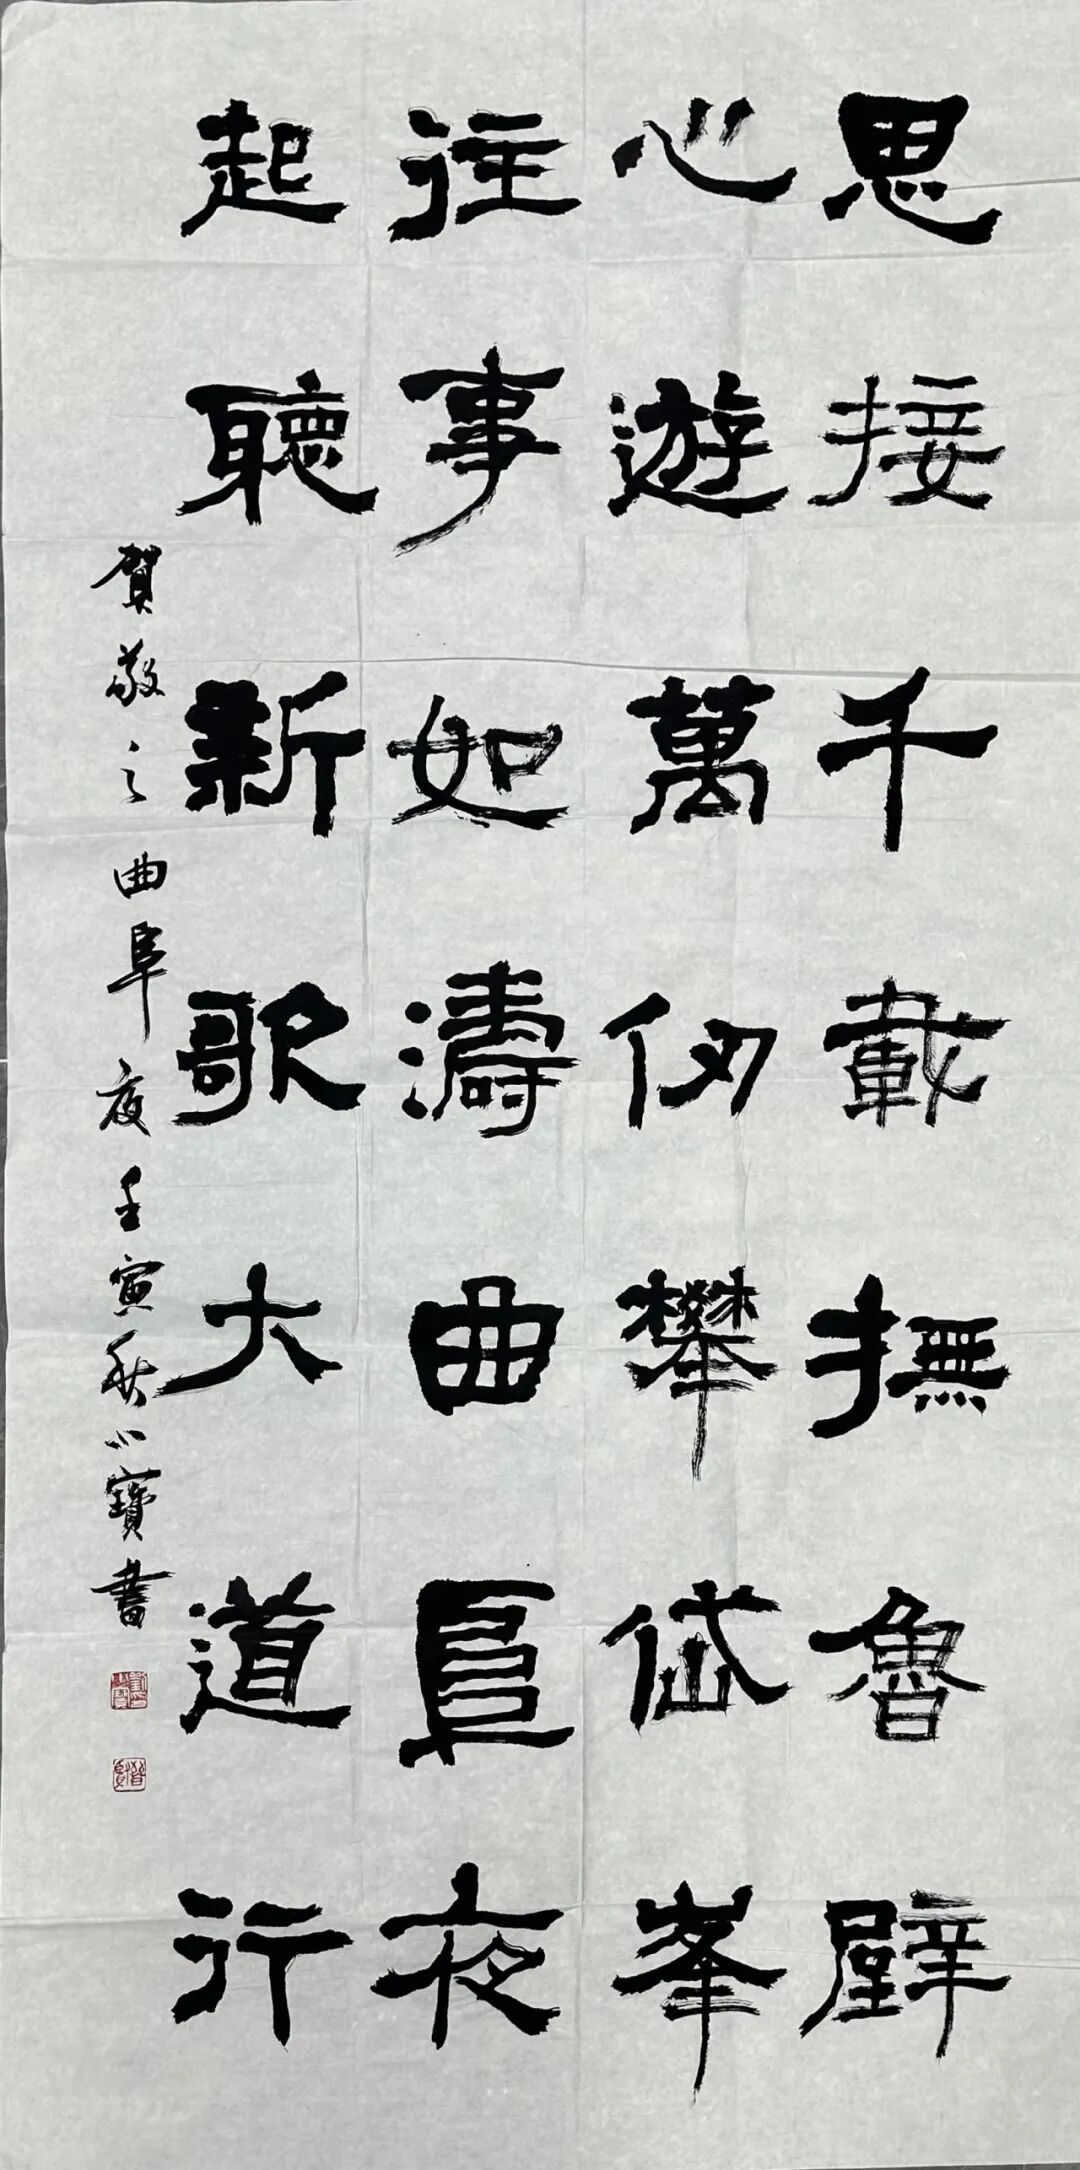 思接千載撫魯壁
心遊萬仞攀岱峯
往事如濤曲阜夜
起聽新歌大道行
賀敬之曲阜夜壬寅秋小寶書